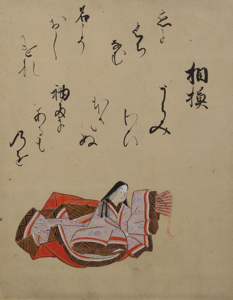 相摸
うらみ
わひ
ほさぬ
袖たに
あるも
のを
恋に
くち
なむ
名こそ
おし
けれ